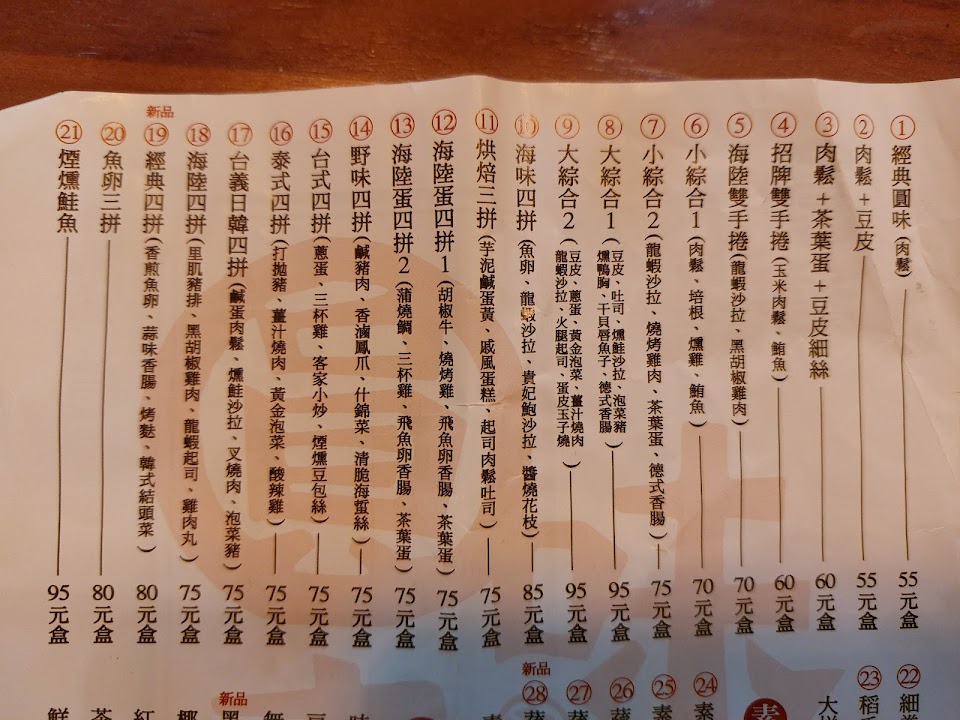 ① 經典圓味(肉鬆) 55元盒
② 肉鬆+豆皮 55元盒
③ 肉鬆+茶葉蛋+豆皮細絲 60元盒
④ 招牌雙手捲(玉米肉鬆、鮪魚) 60元盒
⑤ 海陸雙手捲(龍蝦沙拉、黑胡椒雞肉) 70元盒
⑥ 小綜合1(肉鬆、培根、燻雞、鮪魚) 70元盒
⑦ 小綜合2(龍蝦沙拉、燒烤雞肉、茶葉蛋、德式香腸) 75元盒
⑧ 大綜合1(豆皮、吐司、燻鮭沙拉、泡菜豬、燻鴨胸、干貝唇魚子、德式香腸) 95元盒
⑨ 大綜合2(豆皮、蔥蛋、黃金泡菜、薑汁燒肉、龍蝦沙拉、火腿起司、蛋皮玉子燒) 95元盒
⑩ 海味四拼(魚卵、龍蝦沙拉、貴妃鮑沙拉、醬燒花枝) 85元盒
⑪ 烘焙三拼(芋泥鹹蛋黃、戚風蛋糕、起司肉鬆吐司) 75元盒
⑫ 海陸蛋四拼1(胡椒牛、燒烤雞、飛魚卵香腸、茶葉蛋) 75元盒
⑬ 海陸蛋四拼2(蒲燒鯛、三杯雞、飛魚卵香腸、茶葉蛋) 75元盒
⑭ 野味四拼(鹹豬肉、香滷鳳爪、什錦菜、清脆海蜇絲) 75元盒
⑮ 台式四拼(蔥蛋、三杯雞、客家小炒、煙燻豆包絲) 75元盒
⑯ 泰式四拼(打拋豬、薑汁燒肉、黃金泡菜、酸辣雞) 75元盒
⑰ 台義日韓四拼(鹹蛋肉鬆、燻鮭沙拉、叉燒肉、泡菜豬) 75元盒
⑱ 海陸四拼(里肌豬排、黑胡椒雞肉、龍蝦起司、雞肉丸) 75元盒
新品
⑲ 經典四拼(香煎魚卵、蒜味香腸、烤麩、韓式結頭菜) 80元盒
⑳ 魚卵三拼 80元盒
㉑ 煙燻鮭魚 95元盒
㉒ 細
㉓ 稻
大
素
㉔ 素
㉕ 素
㉖
㉗
新品
㉘
新品